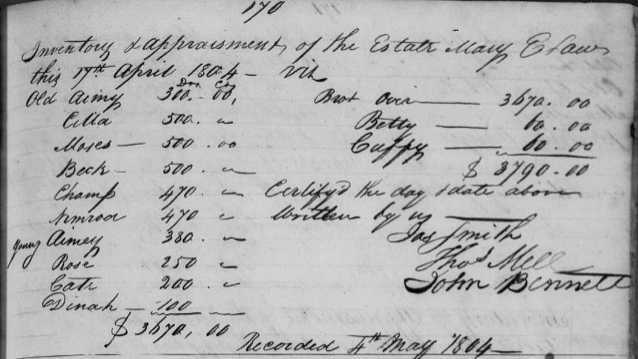 170
Inventory & appraisment of the Estate Mary E Laws
this 17th April 1804 — Viz
Dos Cts
Old Aimy 300.. 00,
Cilla 500. "
Moses — 500. 00
Beck — 500. "
Champ 470 "
Nimrod 470 "
young Aimey 380. "
Rose 250 "
Cate 200. "
Dinah — 100
$ 3670, 00
Brot over — 3670. 00
Betty — 60. 00
Cuffy — 60. 00
$ 3790. 00
Certify'd the day & date above
Written by us —
Jas Smith
Thos Mell
John Bennett
Recorded 4th May 1804